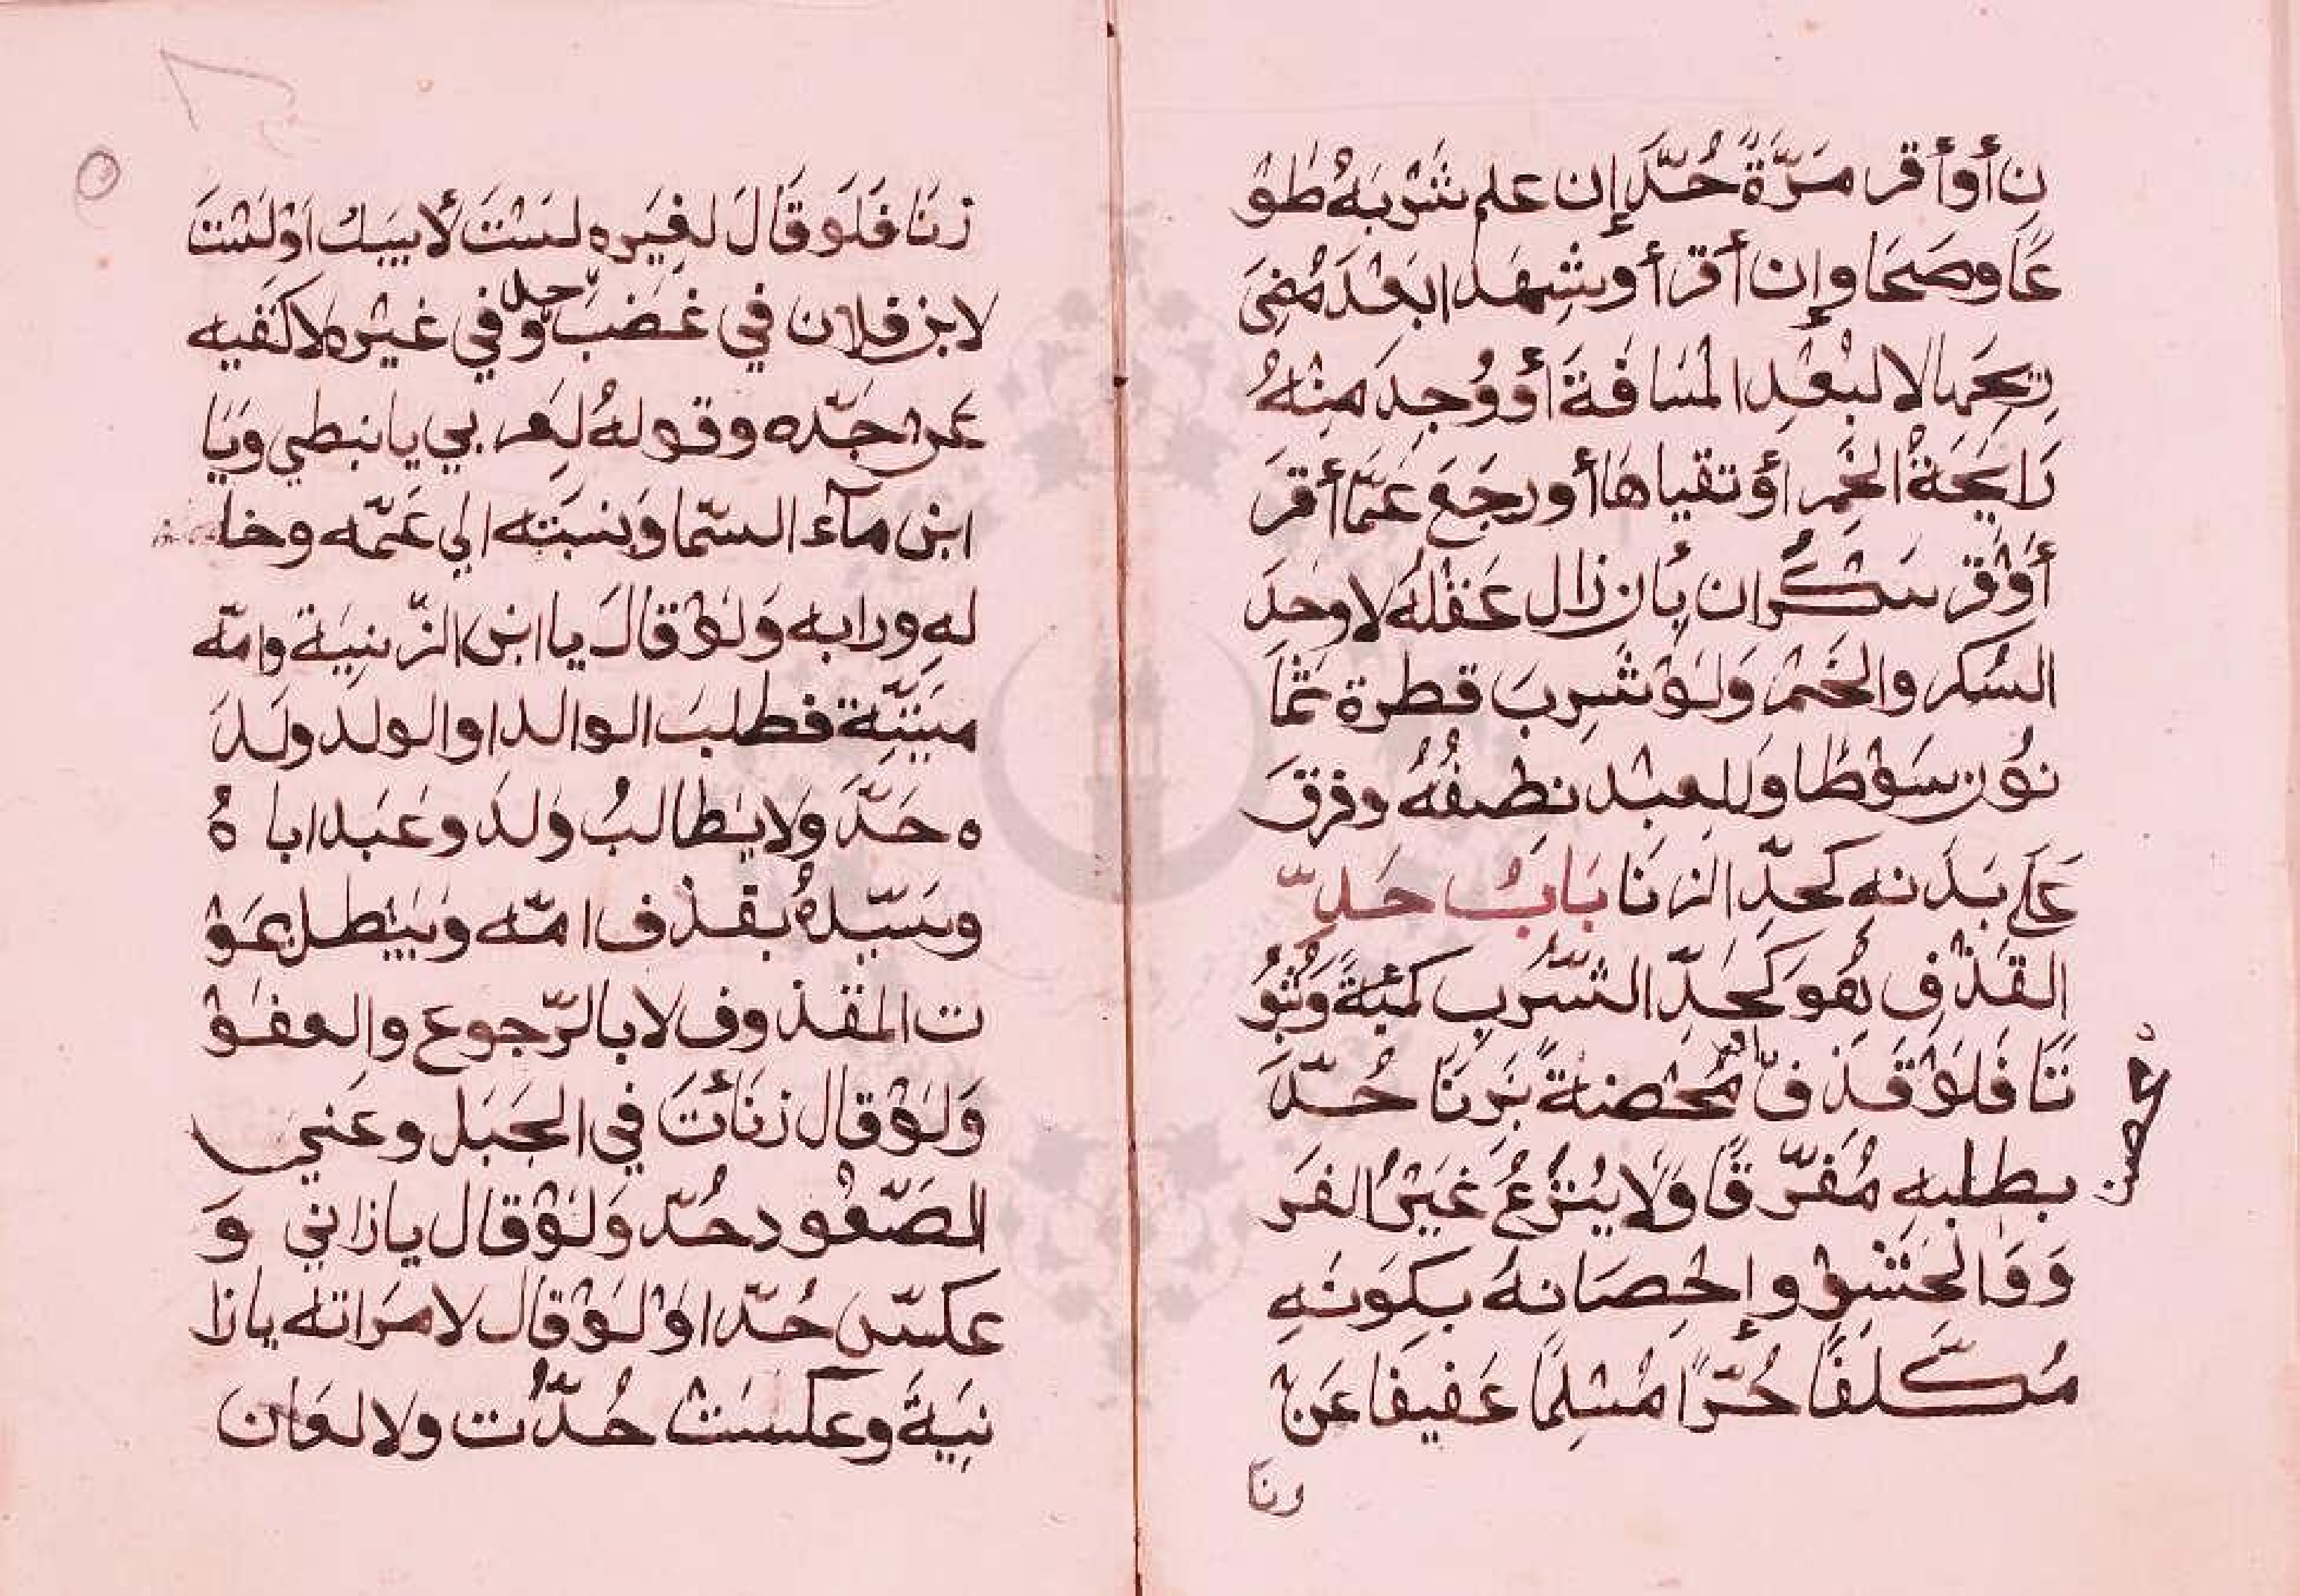 ن أو أقر مَرَّةً حُدَّ إن علم شُرْبَهُ طَوْ
عًا وصَحَا وإن أقر أو شهدا بَعْدَ مُضِيَ
رِيحِهَا لا لبُعْدِ المْسَافَةَ أو وُجِدَ مِنْهُ
رَايِحَةُ الخَمِر أوْ تقياها أو رجَعَ عَمَّا أقر
أَوْ قر سَكْرَان بُان زال عَقْلهُ لا وحدَ
السُكر والخَمْر وَلوْ شَرِبَ قطرة ثمَا
نوُن سَوْطا وَللعبْد نصْفُهُ وفرقَ
عَلَى بَدَنه كحدِّ الزنَا بَابُ حَدِّ
القَذْفِ هُوَ كَحَدِّ الشُّرْبِ كميَّةً وَثبُوُ
تَا فَلوْ قَذفَ مُحْصَنةً بزِنَا حُدَّ
محصن
بطلبهِ مُفَرَّقًا وَلَا ينْزَعُ غَيْرُ الفَر
وَ وَالحَشْوِ وإحْصَانهُ بكِوَنهِ
مُكَلّفًا حُرًّا مُسْلِمًا عَفيفا عَنْ
زنَا
زنَا فَلَوقَالَ لغِيَره لسْتَ لأبيَك اوْ لَسْتَ
لابن فلان في غَضَبٍ حدّ وَفي غيْره لا كنَفيه
عَنْ جَدّه وقولهُ لِعَربي يا نبطي وَيَا
ابن مآء السّما وَنسَبتِه الي عَمّه وخا
لهِ ورابه وَلوْ قالَ يا ابن الزّنيَة وامّه
ميَتّة فطلبَ الوالد او الولد ولدَ
ه حَدَّ وَلا يطالبُ وَلدَ وعَبد ابا هُ
وسَيّدهُ بقذف امّه وَيبْطل بمَوْ
ت المقذوف لا بالرّجوع والعفوْ
وَلوْ قال زنَأتَ في الجَبَل وعَني
الصّعُود حُدّ وَلوْ قال يا زاني وَ
عكسّ حُدّا وْ لَوْ قال لامرَاته يا زا
نيَةَ وعكسَتْ حُدّت ولا لعَان